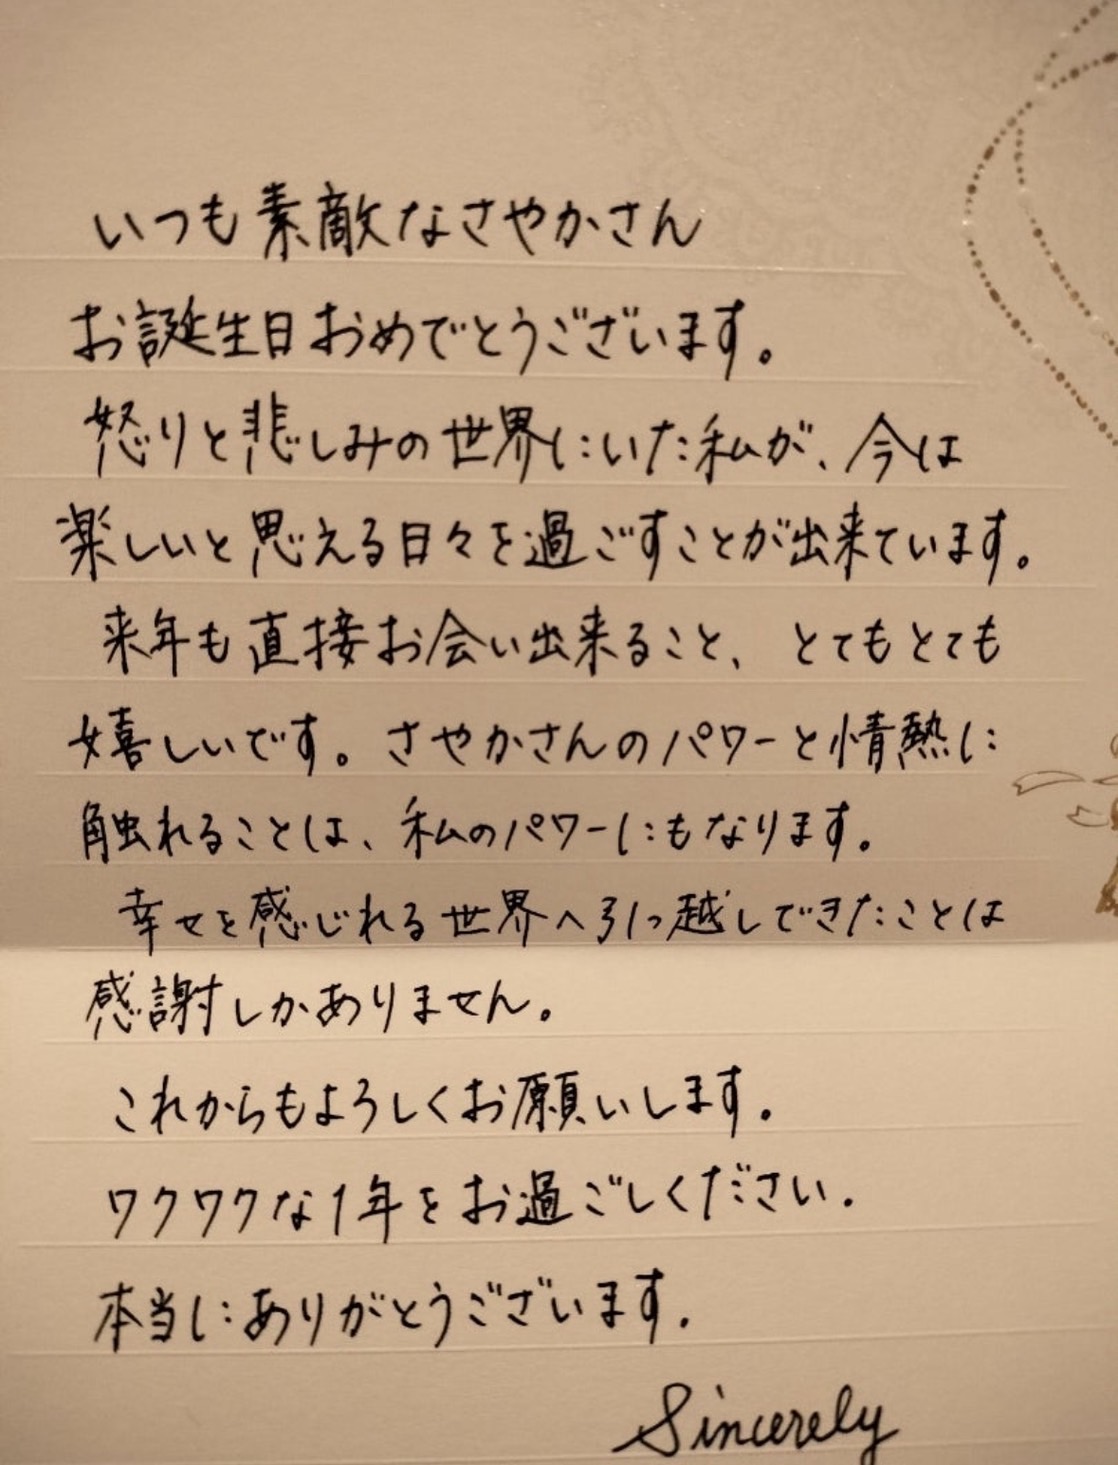 いつも素敵なさやかさん
お誕生日おめでとうございます。
怒りと悲しみの世界にいた私が、今は
楽しいと思える日々を過ごすことが出来ています。
来年も直接お会い出来ること、とてもとても
嬉しいです。さやかさんのパワーと情熱に
触れることは、私のパワーにもなります。
幸せを感じれる世界へ引っ越しできたことは
感謝しかありません。
これからもよろしくお願いします。
ワクワクな1年をお過ごしください.
本当にありがとうございます.
Sincerely